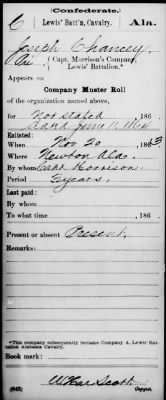 Confederate.
C Lewis' Batt'n, Cavalry. Ala.
Joseph Chancey
Pri, Capt. Morrison's Company,
Lewis' Battalion.*
Appears on
Company Muster Roll
of the organization named above,
for Not stated , 186 .
dated June 11, 1864
Enlisted:
When Nov 20 , 1863
Where Newton Ala.
By whom Capt Morrison
Period 3 years
Last paid:
By whom
To what time , 186 .
Present or absent Present
Remarks:
*This company subsequently became Company A, Lewis' Battalion Alabama Cavalry.
Book mark:
(642) Copyist.